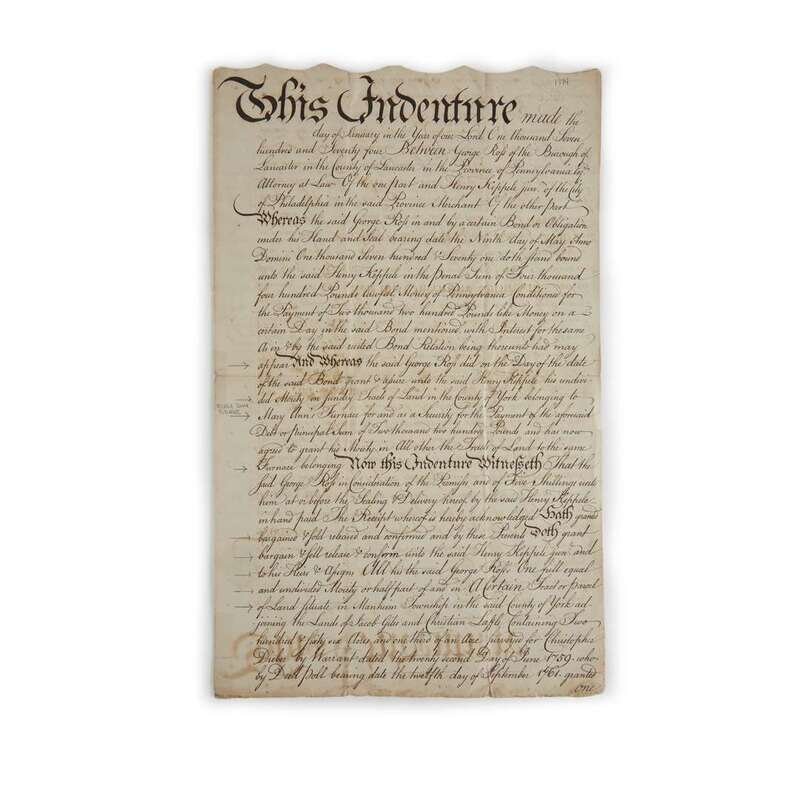 1774
This Indenture made the
day of January in the Year of our Lord One thousand Seven
hundred and Seventy four Between George Ross of the Borough of
Lancaster in the County of Lancaster in the Province of Pennsylvania
Attorney at Law Of the one part and Henry Keppele junr. of the City
of Philadelphia in the said Province Merchant Of the other part
Whereas the said George Ross in and by a certain Bond or Obligation
under his Hand and Seal bearing date the Ninth day of May Anno
Domini One thousand Seven hundred & Seventy one doth stand bound
unto the said Henry Keppele in the penal Sum of Four thousand
four hundred Pounds lawful Money of Pennsylvania Conditioned for
the Payment of Two thousand two hundred Pounds like Money on a
certain Day in the said Bond mentioned with Interest for the same
As in & by the said recited Bond Relation being thereunto had may
appear And Whereas the said George Ross did on the Day of the date
of the said Bond grant & assure unto the said Henry Keppele his undivi-
ded Moiety in sundry Tracts of Land in the County of York belonging to
Mary Ann's Furnace for and as a Security for the Payment of the aforesaid
Debt or principal Sum of Two thousand two hundred Pounds, and has now
agreed to grant his Moiety in All other the Tracts of Land to the same
Furnace belonging Now this Indenture Witnesseth That the
said George Ross in Consideration of the Premises and of Five Shillings unto
him at or before the Sealing & Delivery hereof by the said Henry Keppele
in hand paid The Receipt whereof is hereby acknowledged Hath granted
bargained & sold released and confirmed and by these Presents Doth grant
bargain & sell release & confirm unto the said Henry Keppele junr. and
to his Heirs & Assigns All his the said George Ross's One full equal
and undivided Moiety or half part of and in A Certain Tract or parcel
of Land situate in Manheim Township in the said County of York ad-
joining the Lands of Jacob Giles and Christian Containing Two
hundred & sixty six Acres and one third of an Acre Surveyed for Christopher
by Warrant dated the twenty second Day of June 1759. who
by Deed poll bearing date the twelfth day of September 1761. granted
one